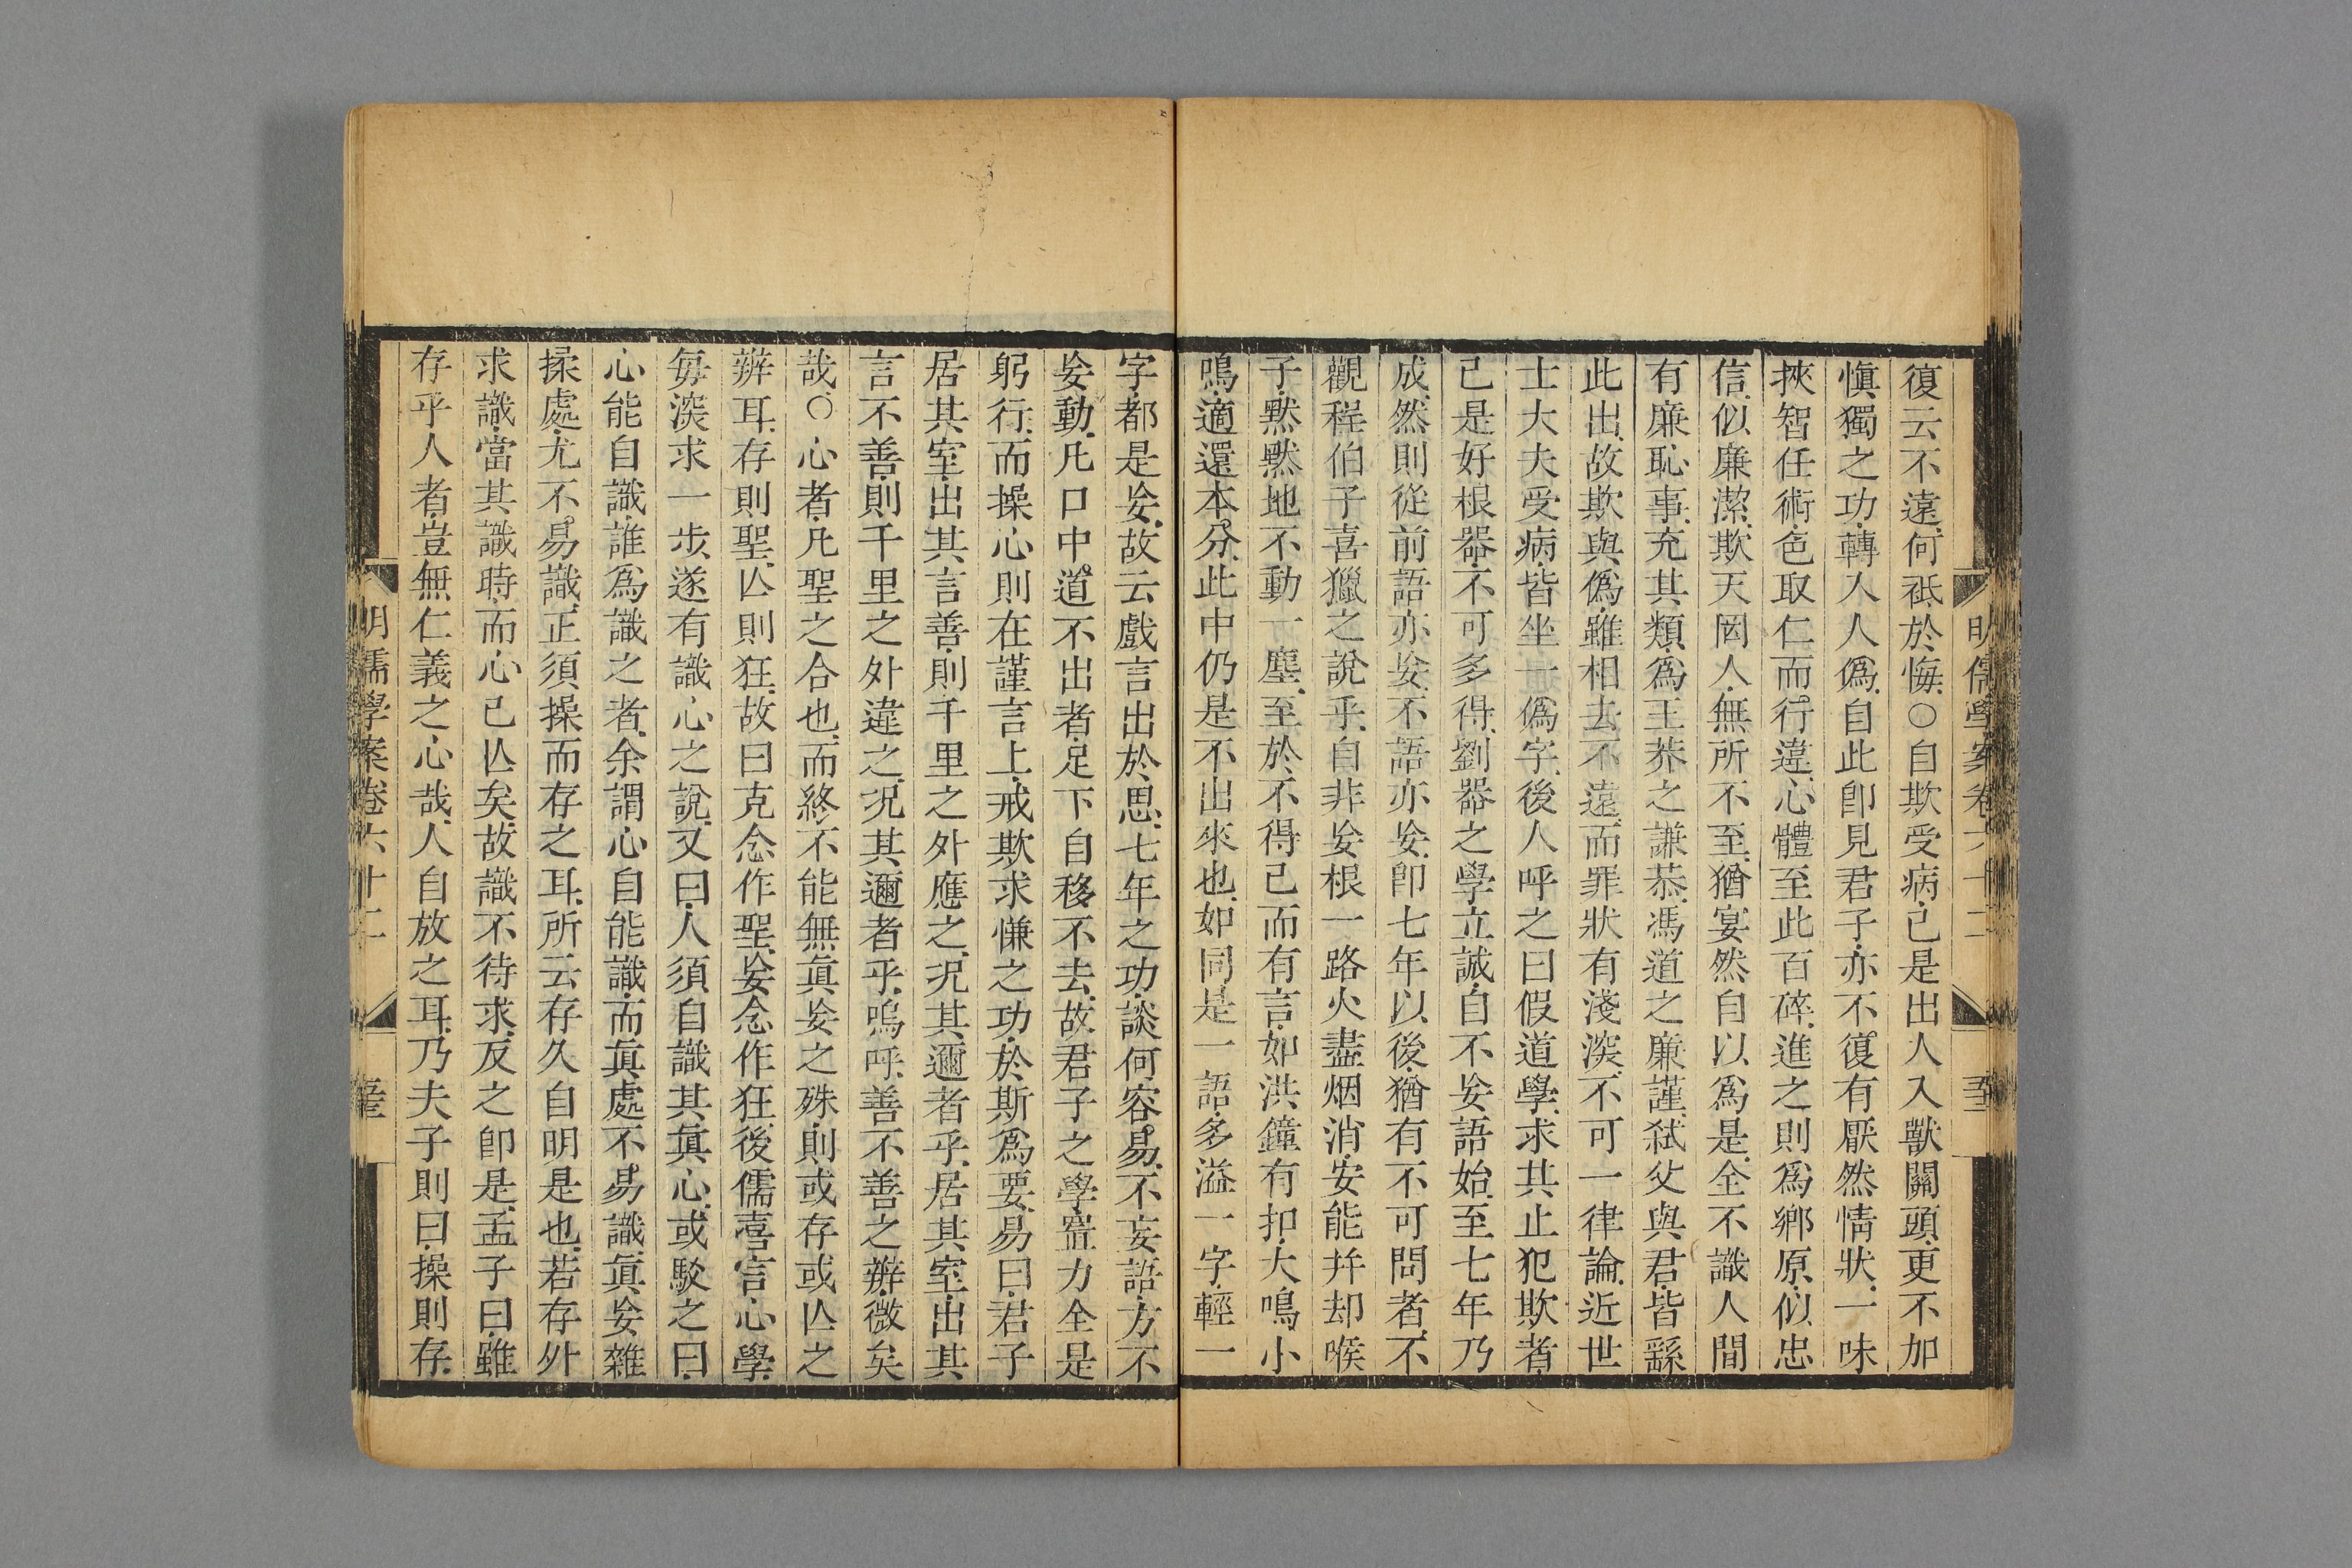 明儒學案卷六十二
復云不遠何祗於悔○自欺受病己是出人入獸關頭更不加
愼獨之功轉入人僞自此卽見君子亦不復有厭然情狀一味
挾智任術色取仁而行違心體至此百碎進之則爲鄕原似忠
信似廉潔欺天罔人無所不至猶宴然自以爲是全不識人間
有廉恥事充其類爲王莽之謙恭馮道之廉謹弑父與君皆繇
此出故欺與僞雖相去不遠而罪狀有淺深不可一律論近世
士大夫受病皆坐一僞字後人呼之曰假道學求其止犯欺者
己是好根器不可多得劉器之學立誠自不妄語始至七年乃
成然則從前語亦妄不語亦妄卽七年以後猶有不可問者不
觀程伯子喜獵之說乎自非妄根一路火盡烟消安能幷却喉
子默默地不動一塵至於不得已而有言如洪鐘有扣大鳴小
鳴適還本分此中仍是不出來也如同是一語多溢一字輕一
字都是妄故云戲言出於思七年之功談何容易不妄語方不
妄動凡口中道不出者足下自移不去故君子之學窐力全是
躬行而操心則在謹言上戒欺求慊之功於斯爲要易曰君子
居其室出其言善則千里之外應之况其邇者乎居其室出其
言不善則千里之外違之况其邇者乎嗚呼善不善之辨微矣
哉○心者凡聖之合也而終不能無眞妄之殊則或存或亾之
辨耳存則聖亾則狂故曰克念作聖妄念作狂後儒喜言心學
每深求一步遂有識心之說又曰人須自識其眞心或駁之曰
心能自識誰爲識之者余謂心自能識而眞處不易識眞妄雜
揉處尤不易識正須操而存之耳所云存久自明是也若存外
求識當其識時而心已亾矣故識不待求反之卽是孟子曰雖
存乎人者豈無仁義之心哉人自放之耳乃夫子則曰操則存
明儒學案卷六十二